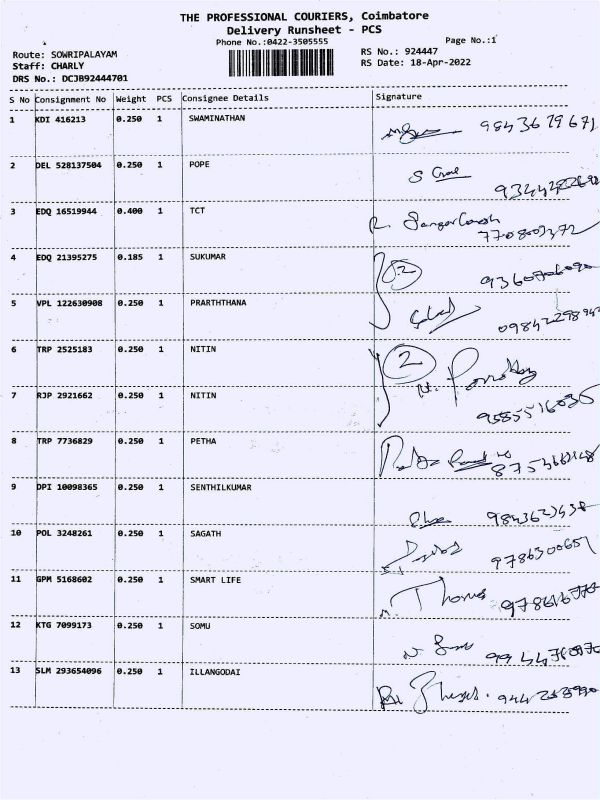 THE PROFESSIONAL COURIERS, Coimbatore
Delivery Runsheet - PCS
Phone No.:0422-3505555
Page No.:1
Route: SOWRIPALAYAM
RS No.: 924447
Staff: CHARLY
RS Date: 18-Apr-2022
DRS No.: DCJB92444701
S No Consignment No Weight PCS Consignee Details Signature
1 KDI 416213 0.250 1 SWAMINATHAN
9843629671
2 DEL 528137504 0.250 1 POPE
3 EDQ 16519944 0.400 1 TCT
4 EDQ 21395275 0.185 1 SUKUMAR
2
5 VPL 122630908 0.250 1 PRARTHTHANA
6 TRP 2525183 0.250 1 NITIN
2
7 RJP 2921662 0.250 1 NITIN
9585516035
8 TRP 7736829 0.250 1 PETHA
9 DPI 10098365 0.250 1 SENTHILKUMAR
9843623438
10 POL 3248261 0.250 1 SAGATH
9786300651
11 GPM 5168602 0.250 1 SMART LIFE
Thomas
12 KTG 7099173 0.250 1 SOMU
13 SLM 293654096 0.250 1 ILLANGODAI